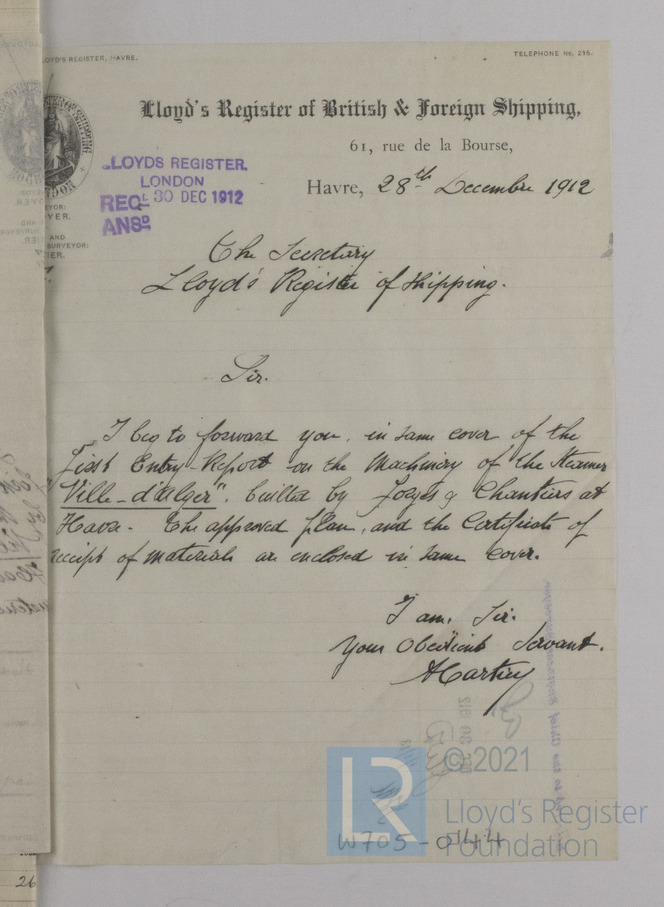 LOYD'S REGISTER, HAVRE.
TELEPHONE No. 295.
Lloyd's Register of British & Foreign Shipping,
61, rue de la Bourse,
Havre, 28th Decembre 1912
LLOYDS REGISTER.
LONDON
REC? 30 DEC 1912
ANSD
YOR:
YER.
AND
SURVEYOR:
IER.
The Secretary
Lloyd's Register of Shipping.
Sir.
I beg to forward you, in same cover of the
First Entry Report on the Machinery of the Steamer
"Ville-d'Alger". builted by Forges & Chantiers at
Havre - The approved plan, and the Certificate of
receipt of materials are enclosed in same cover.
I am, Sir.
Your Obedient Servant.
©2021
LR
Lloyd's Register
Foundation
W705-0144
26